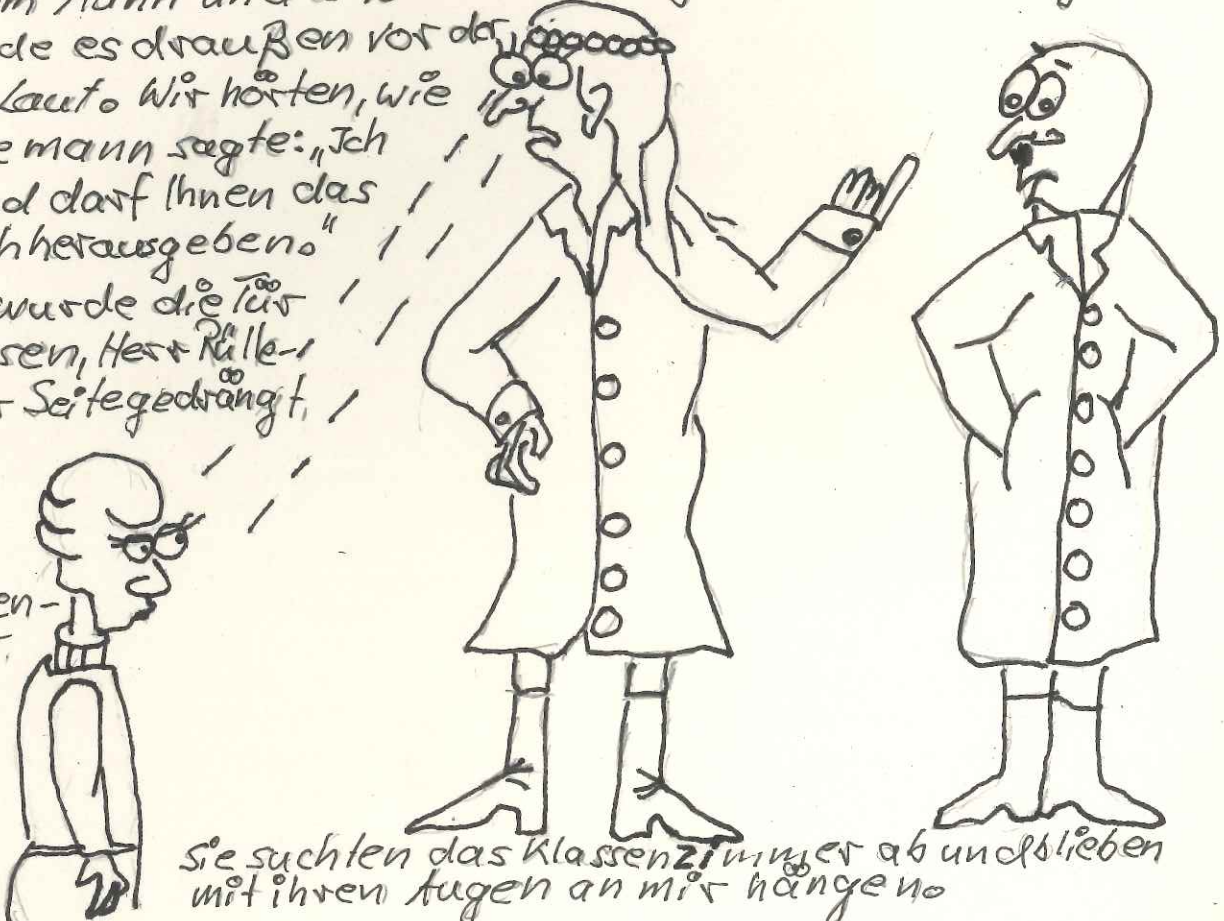 de es draußen vor der
Laut. Wir hörten, wie
emann sagte: „Ich
d darf Ihnen das
h herausgeben."
wurde die Tür
sen, Herr Rülle-
r Seite gedrängt.
en-
sie suchten das Klassenzimmer ab und blieben
mit ihren Augen an mir hängen.